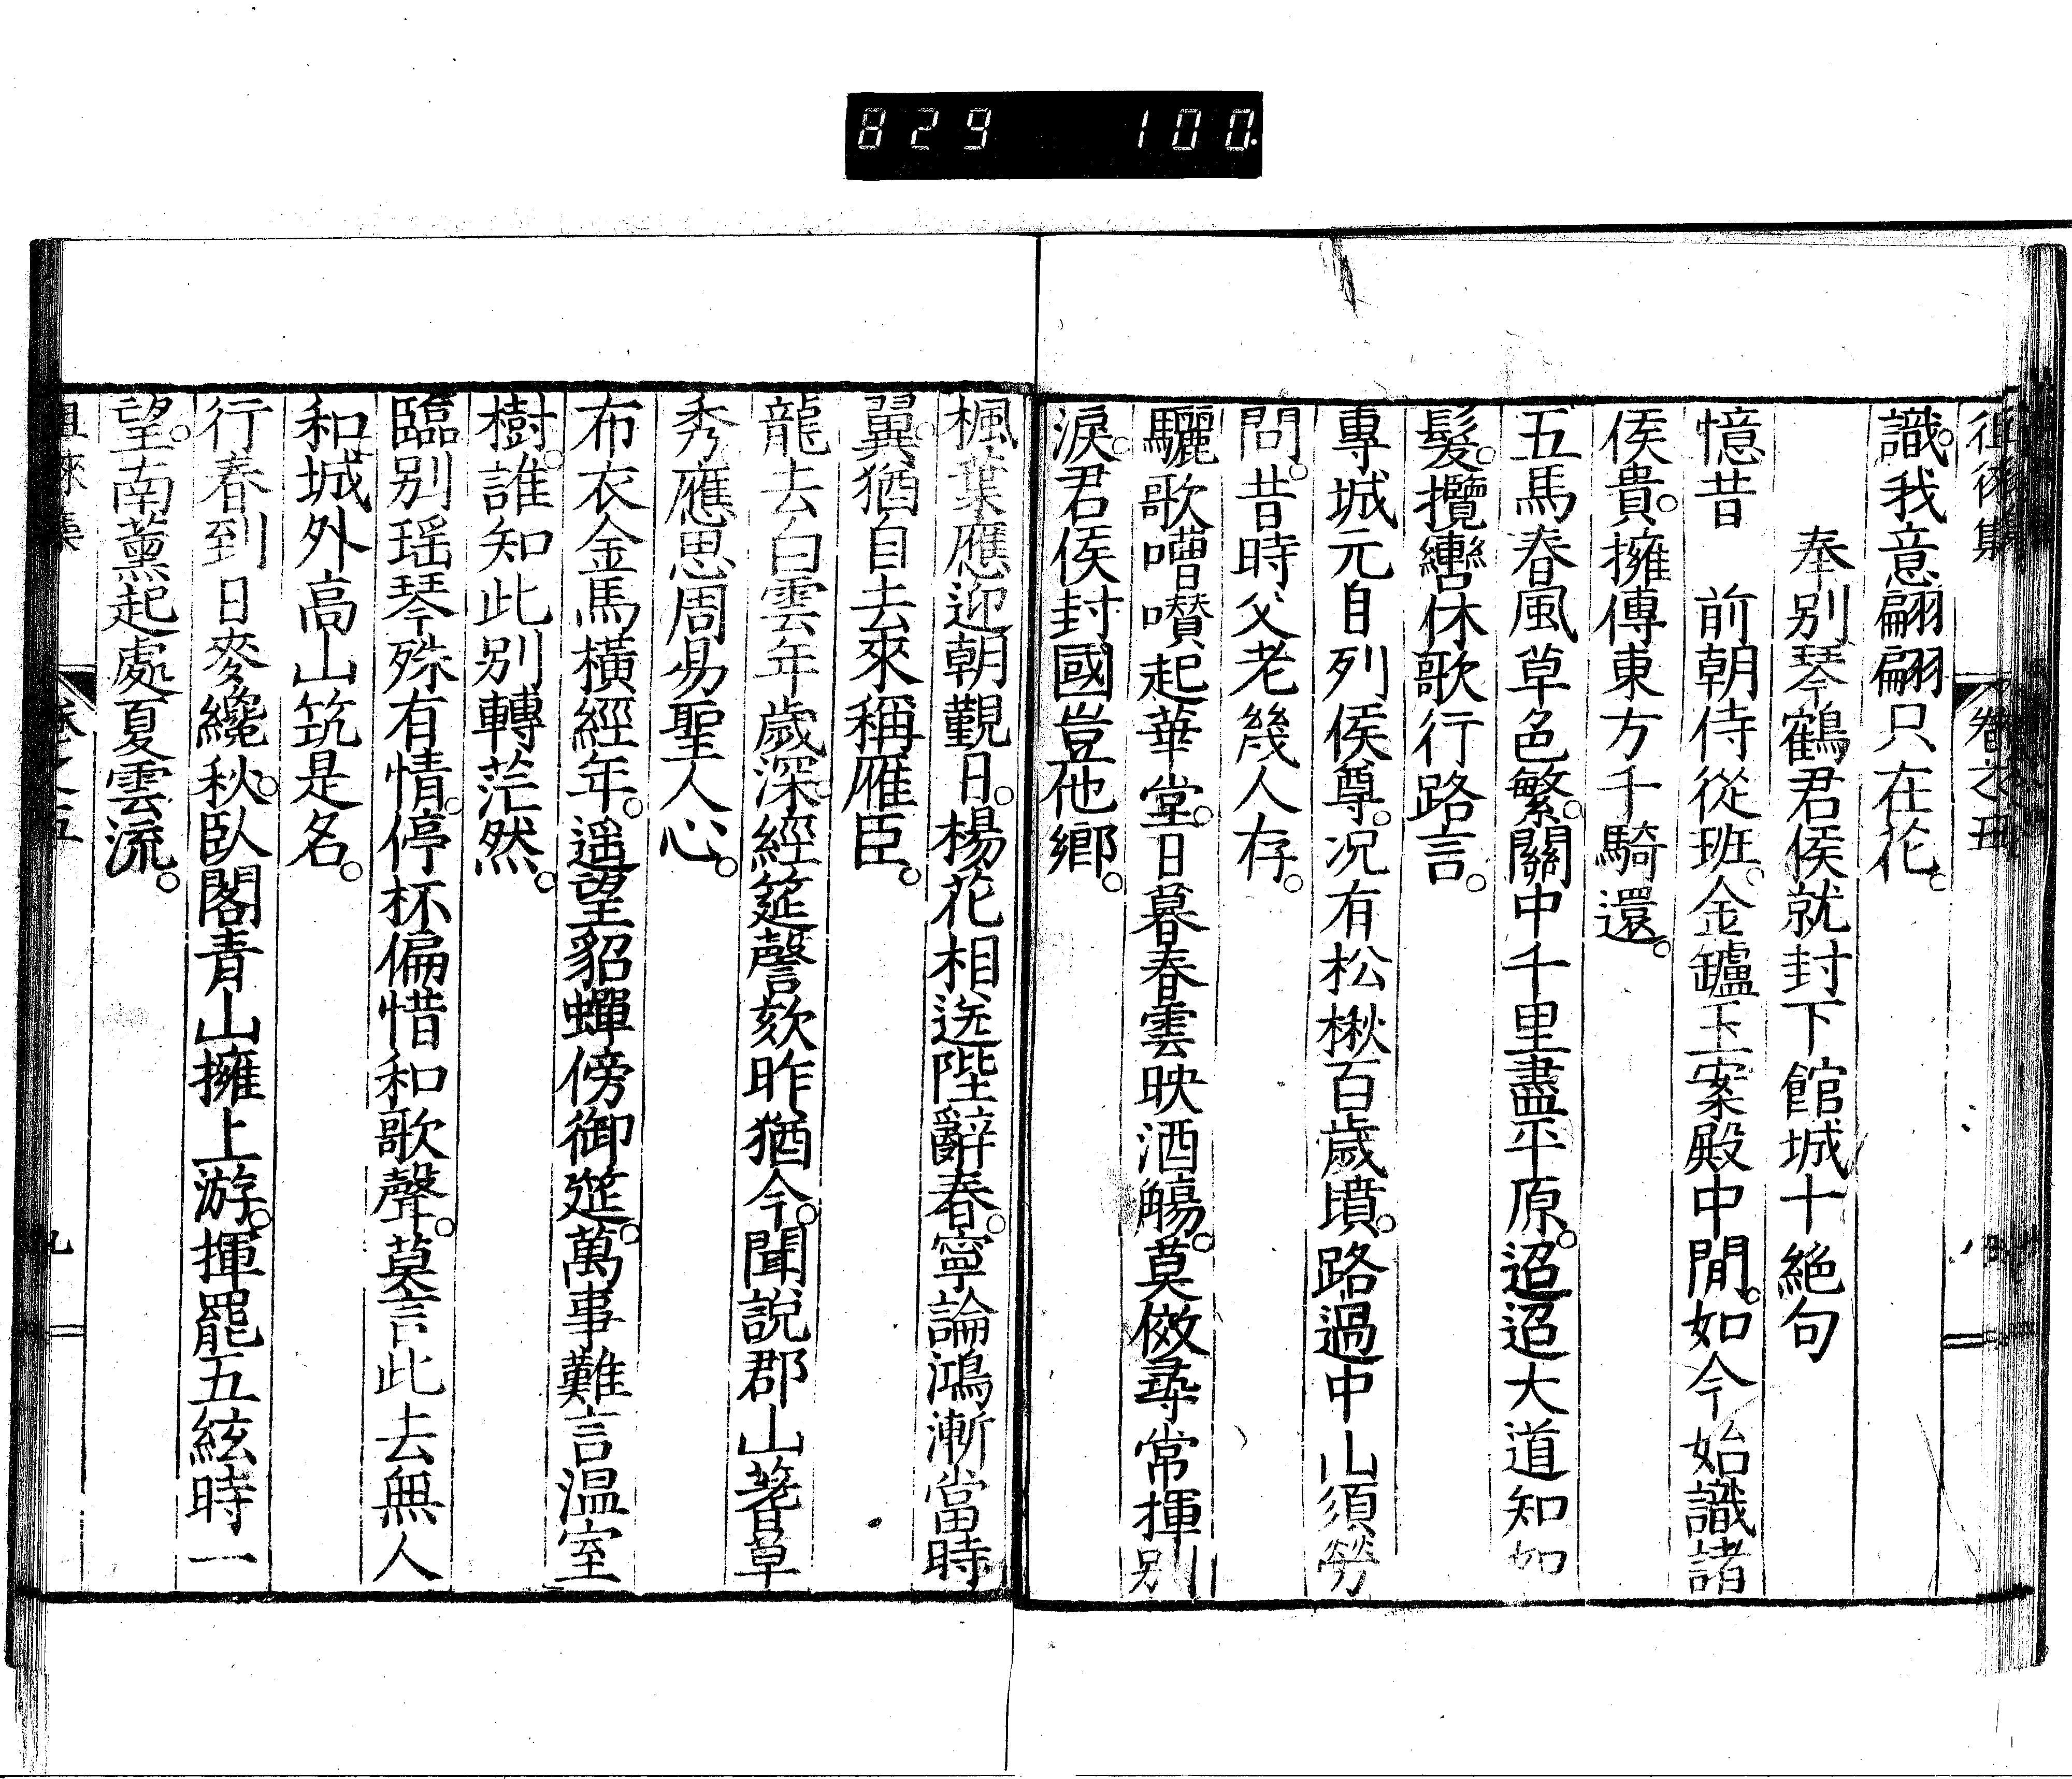 829 100.
徂徠集 卷之五
識。我意翩翩只在花。
奉別琴鶴君侯就封下館城十絕句
憶昔 前朝侍從班。金鑪玉案殿中閒。如今始識諸
侯貴。擁傳東方千騎還。
五馬春風草色繁。關中千里盡平原。迢迢大道知如
髮。攬轡休歌行路言。
專城元自列侯尊。况有松楸百歲墳。路過中山須勞
問。昔時父老幾人存。
驪歌嘈囋起華堂。日暮春雲映酒觴。莫傚尋常揮別
淚。君侯封國豈他鄉。
楓葉應迎朝覲日。楊花相送陛辭春。寧論鴻漸當時
翼。猶自去來稱雁臣。
龍去白雲年歲深。經筵謦欬昨猶今。聞說郡山蓍草
秀。應思周易聖人心。
布衣金馬橫經年。遥望貂蟬傍御筵。萬事難言温室
樹。誰知此別轉茫然。
臨別瑶琴殊有情。停杯偏惜和歌聲。莫言此去無人
和。城外高山筑是名。
行春到日麥纔秋。臥閣青山擁上游。揮罷五絃時一
望。南薰起處夏雲流。
卷之五 九